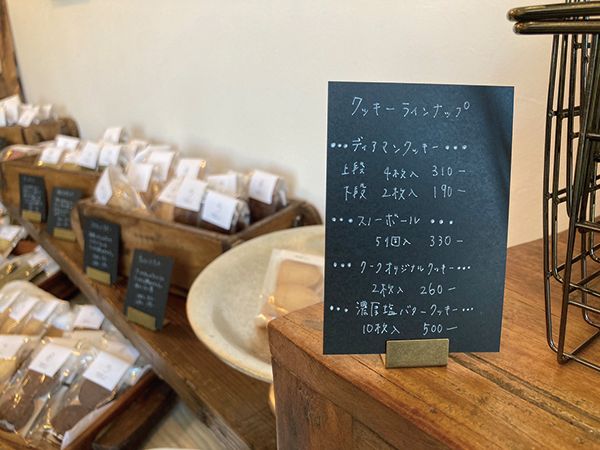 クッキーラインナップ
•••ディアマンクッキー•••
上段 4枚入 310-
下段 2枚入 190-
•••スノーボール •••
5個入 330-
•••クークオリジナルクッキー•••
2枚入 260-
•••濃厚塩バタークッキー•••
10枚入 500-